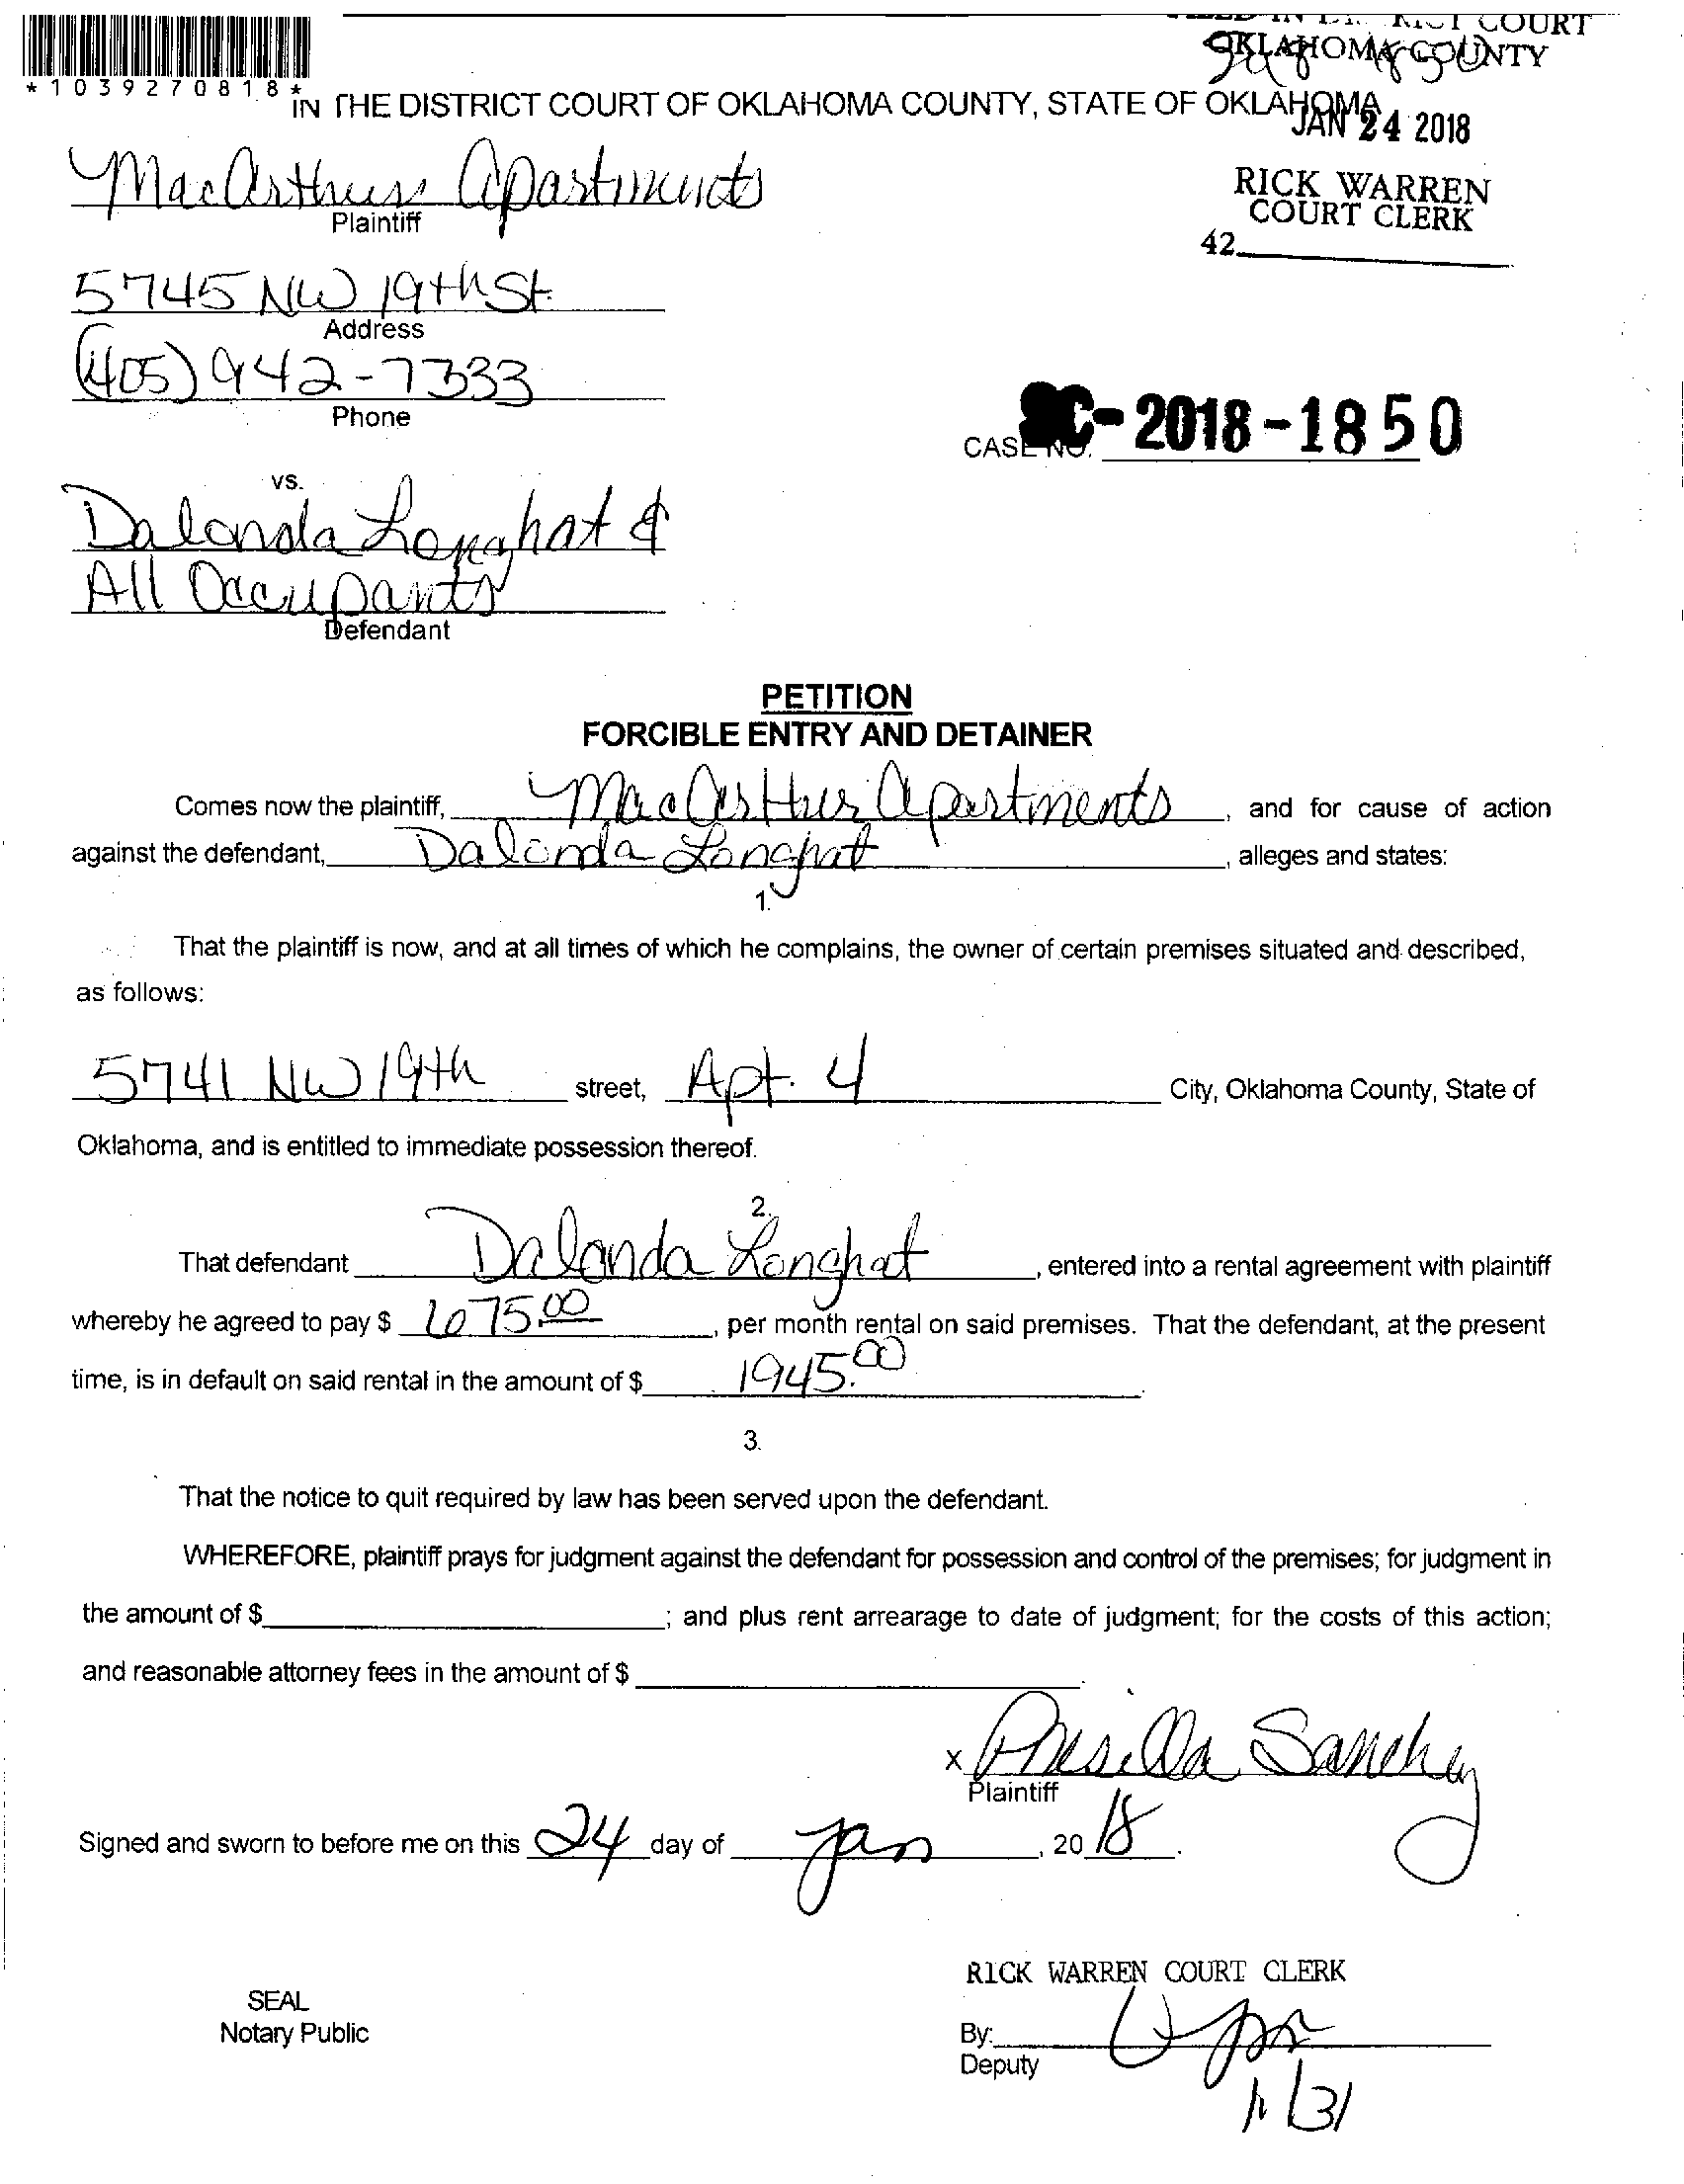 FILED IN DISTRICT COURT
OKLAHOMA COUNTY
*1039270818*
IN THE DISTRICT COURT OF OKLAHOMA COUNTY, STATE OF OKLAHOMA
JAN 24 2018
MacArthur Apartments
Plaintiff
RICK WARREN
COURT CLERK
42
5745 NW 19th St.
Address
(405) 942-7333
Phone
CASE NO. SC-2018-1850
vs.
Dalonda Longhat &
All Occupants
Defendant
PETITION
FORCIBLE ENTRY AND DETAINER
Comes now the plaintiff, MacArthur Apartments, and for cause of action
against the defendant, Dalonda Longhat, alleges and states:
1.
That the plaintiff is now, and at all times of which he complains, the owner of certain premises situated and described,
as follows:
5741 NW 19th street, Apt. 4 City, Oklahoma County, State of
Oklahoma, and is entitled to immediate possession thereof.
2.
That defendant Dalonda Longhat, entered into a rental agreement with plaintiff
whereby he agreed to pay $ 675.00, per month rental on said premises. That the defendant, at the present
time, is in default on said rental in the amount of $ 1945.00.
3.
That the notice to quit required by law has been served upon the defendant.
WHEREFORE, plaintiff prays for judgment against the defendant for possession and control of the premises; for judgment in
the amount of $; and plus rent arrearage to date of judgment; for the costs of this action;
and reasonable attorney fees in the amount of $.
x Prisilla Sanchez
Plaintiff
Signed and sworn to before me on this 24 day of Jan, 20 18.
RICK WARREN COURT CLERK
SEAL
Notary Public
By:
Deputy
1/31